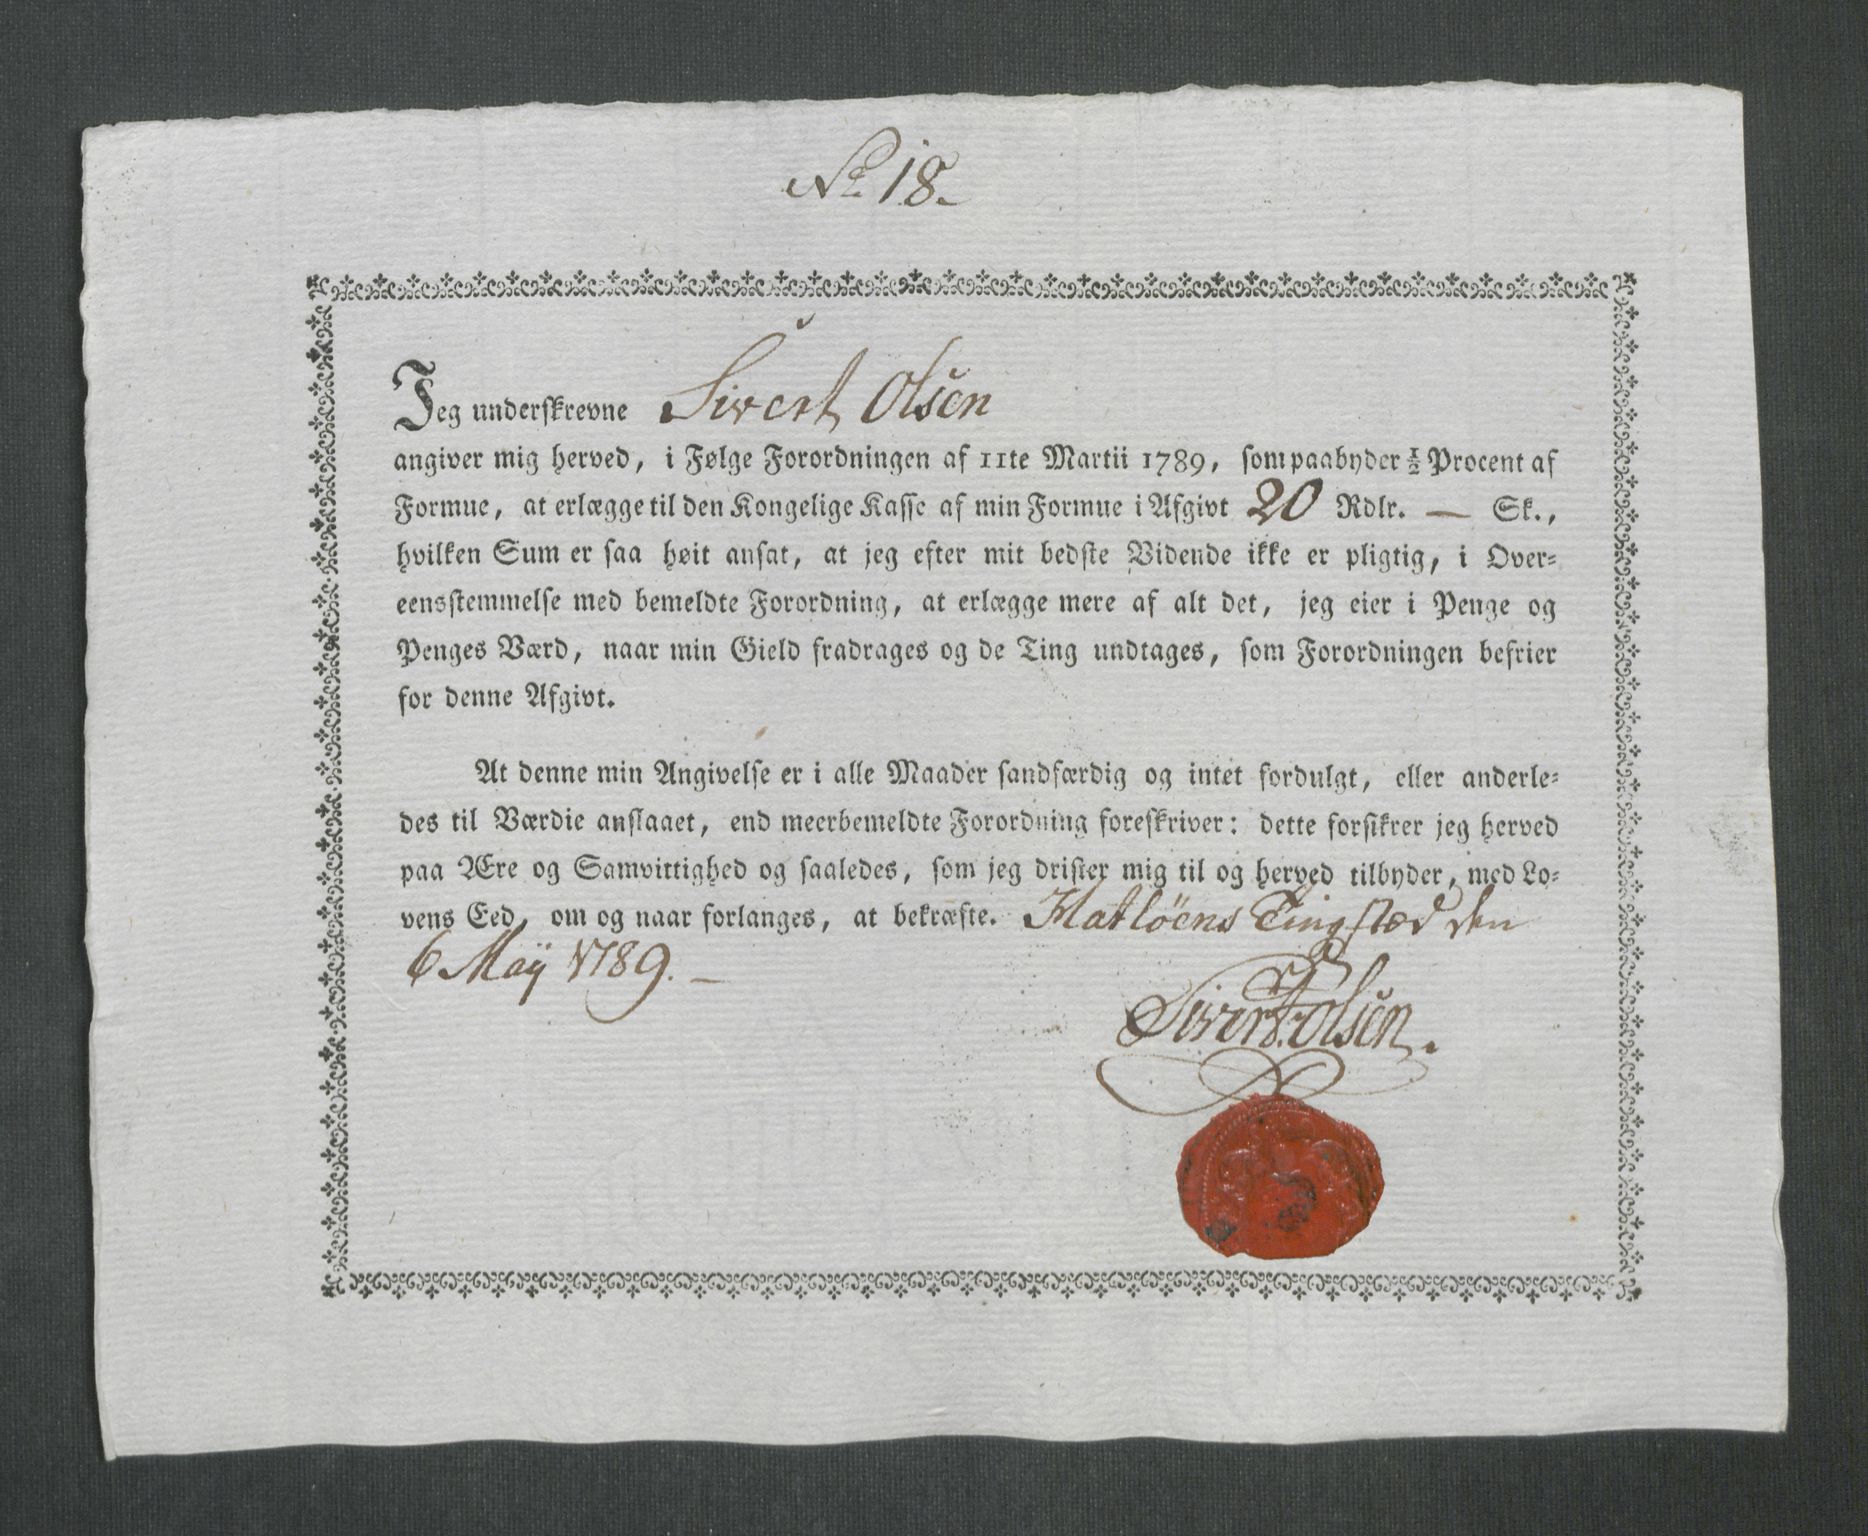 No 18.
Jeg underskrevne Sivert Olsen
angiver mig herved, i Følge Forordningen af 11te Martii 1789, som paabyder ½ Procent af
Formue, at erlægge til den Kongelige Kasse af min Formue i Afgivt 20 Rdlr. — Sk.,
hvilken Sum er saa høit ansat, at jeg efter mit bedste Vidende ikke er pligtig, i Over-
eensstemmelse med bemeldte Forordning, at erlægge mere af alt det, jeg eier i Penge og
Penges Værd, naar min Gield fradrages og de Ting undtages, som Forordningen befrier
for denne Afgivt.
At denne min Angivelse er i alle Maader sandfærdig og intet fordulgt, eller anderle-
des til Værdie anslaaet, end meerbemeldte Forordning foreskriver: dette forsikrer jeg herved
paa Ære og Samvittighed og saaledes, som jeg drister mig til og herved tilbyder, med Lo-
vens Eed, om og naar forlanges, at bekræfte. Hatlöens Tingstæd den
6 Maÿ 1789. —
Sivert Olsen.